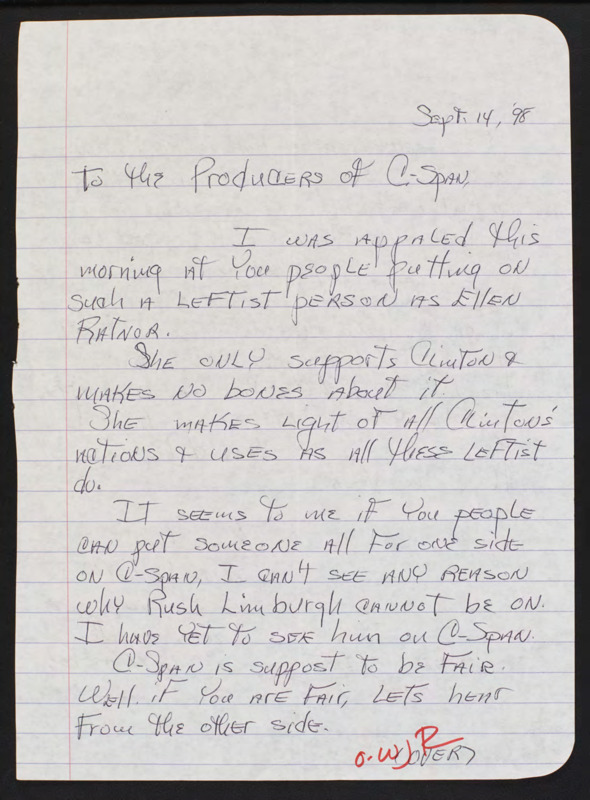 Sept. 14, '98
To the Producers of C-Span,
I was appaled this
morning at you people putting on
such a leftist person as Ellen
Ratnor.
She only supports Clinton &
makes no bones about it.
She makes light of all Clinton's
actions & uses as all these leftist
do.
It seems to me if you people
can put someone all for one side
on C-Span, I can't see any reason
why Rush Limburgh cannot be on.
I have yet to see him on C-Span.
C-Span is suppost to be fair.
Well. if you are fair, lets hear
from the other side.
(over)